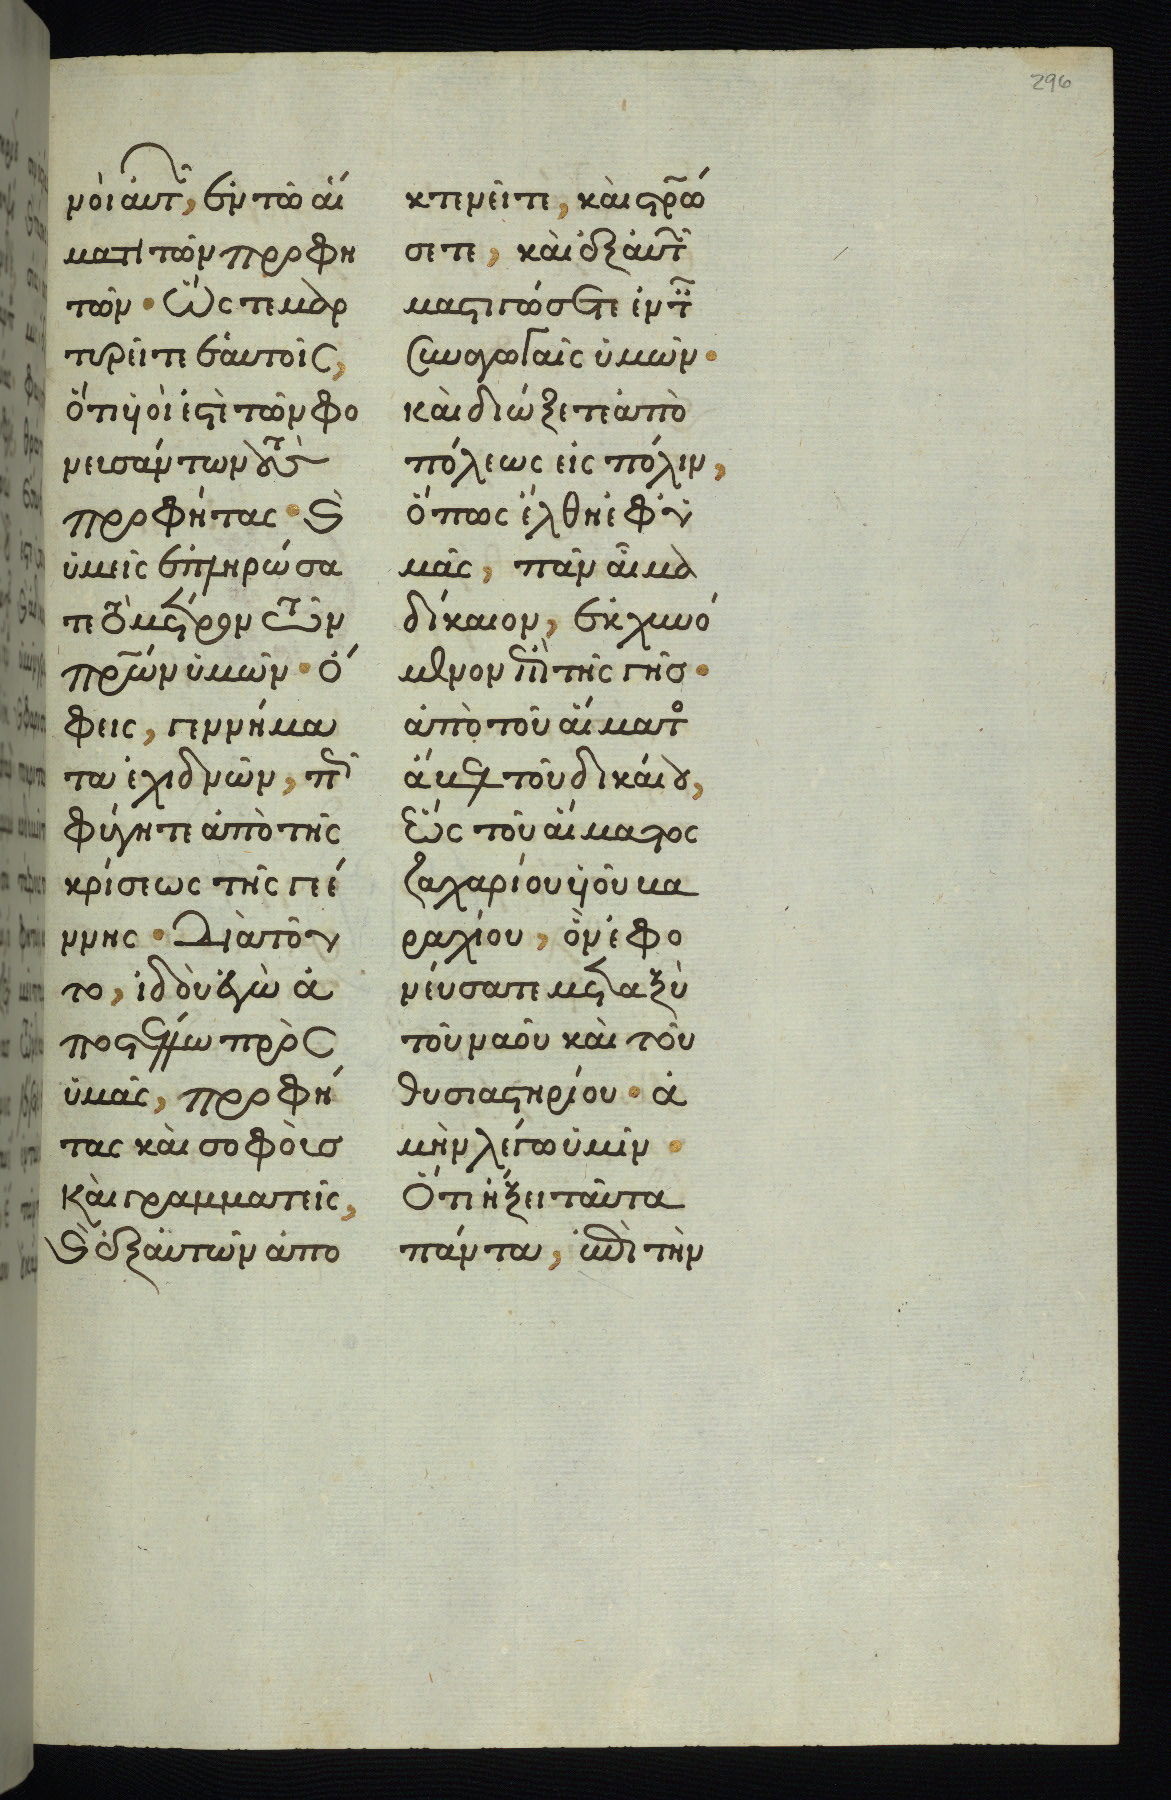 296
νοὶ αὐτῶν, ἐν τῶ αἵ
ματι τῶν προφη
τῶν· Ὥστε μαρ
τυρεῖτε ἑαυτοῖς,
ὅτι ϋἱοὶ ἐστὲ τῶν φο
νευσάντων τοὺς
προφήτας· καὶ
ὑμεῖς ἐπληρώσα
τε τὸ μέτρον τῶν
πρων ὑμῶν· ὄ
φεις, γεννήμα
τα ἐχιδνῶν, πῶς
φύγητε ἀπὸ τῆς
κρίσεως τῆς γεέ
ννης· Διατοῦ
το, ἰδοὺ ἐγὼ ἀ
ποστέλλω πρὸς
ὑμᾶς, προφή
τας καὶ σοφοὺς
καὶ γραμματεῖς,
καὶ ἐξ αὐτῶν ἀπο
κτενεῖτε, καὶ στρώ
σετε, καὶ ἐξ αὐτῶν
μαστιγώσετε ἐν ταῖς
συναγωγαῖς ὑμῶν·
καὶ διώξετε ἀπὸ
πόλεως εἰς πόλιν,
ὅπως ἔλθη ἐφ' ὑ
μᾶς, πᾶν αἷμα
δίκαιον, ἐκχυνό
μενον ἐπὶ τῆς γῆς·
ἀπὸ τοῦ αἵματος
ἄβελ τοῦ δικαίου,
ἕως τοῦ αἵματος
ζαχαρίου ϋἱοῦ βα
ραχίου, ὃν ἐφο
νεύσατε μεταξὺ
τοῦ ναοῦ καὶ τοῦ
θυσιαστηρίου· ἀ
μὴν λέγω ὑμῖν·
Ὅτι ἥξει ταῦτα
πάντα, ἐπὶ τὴν